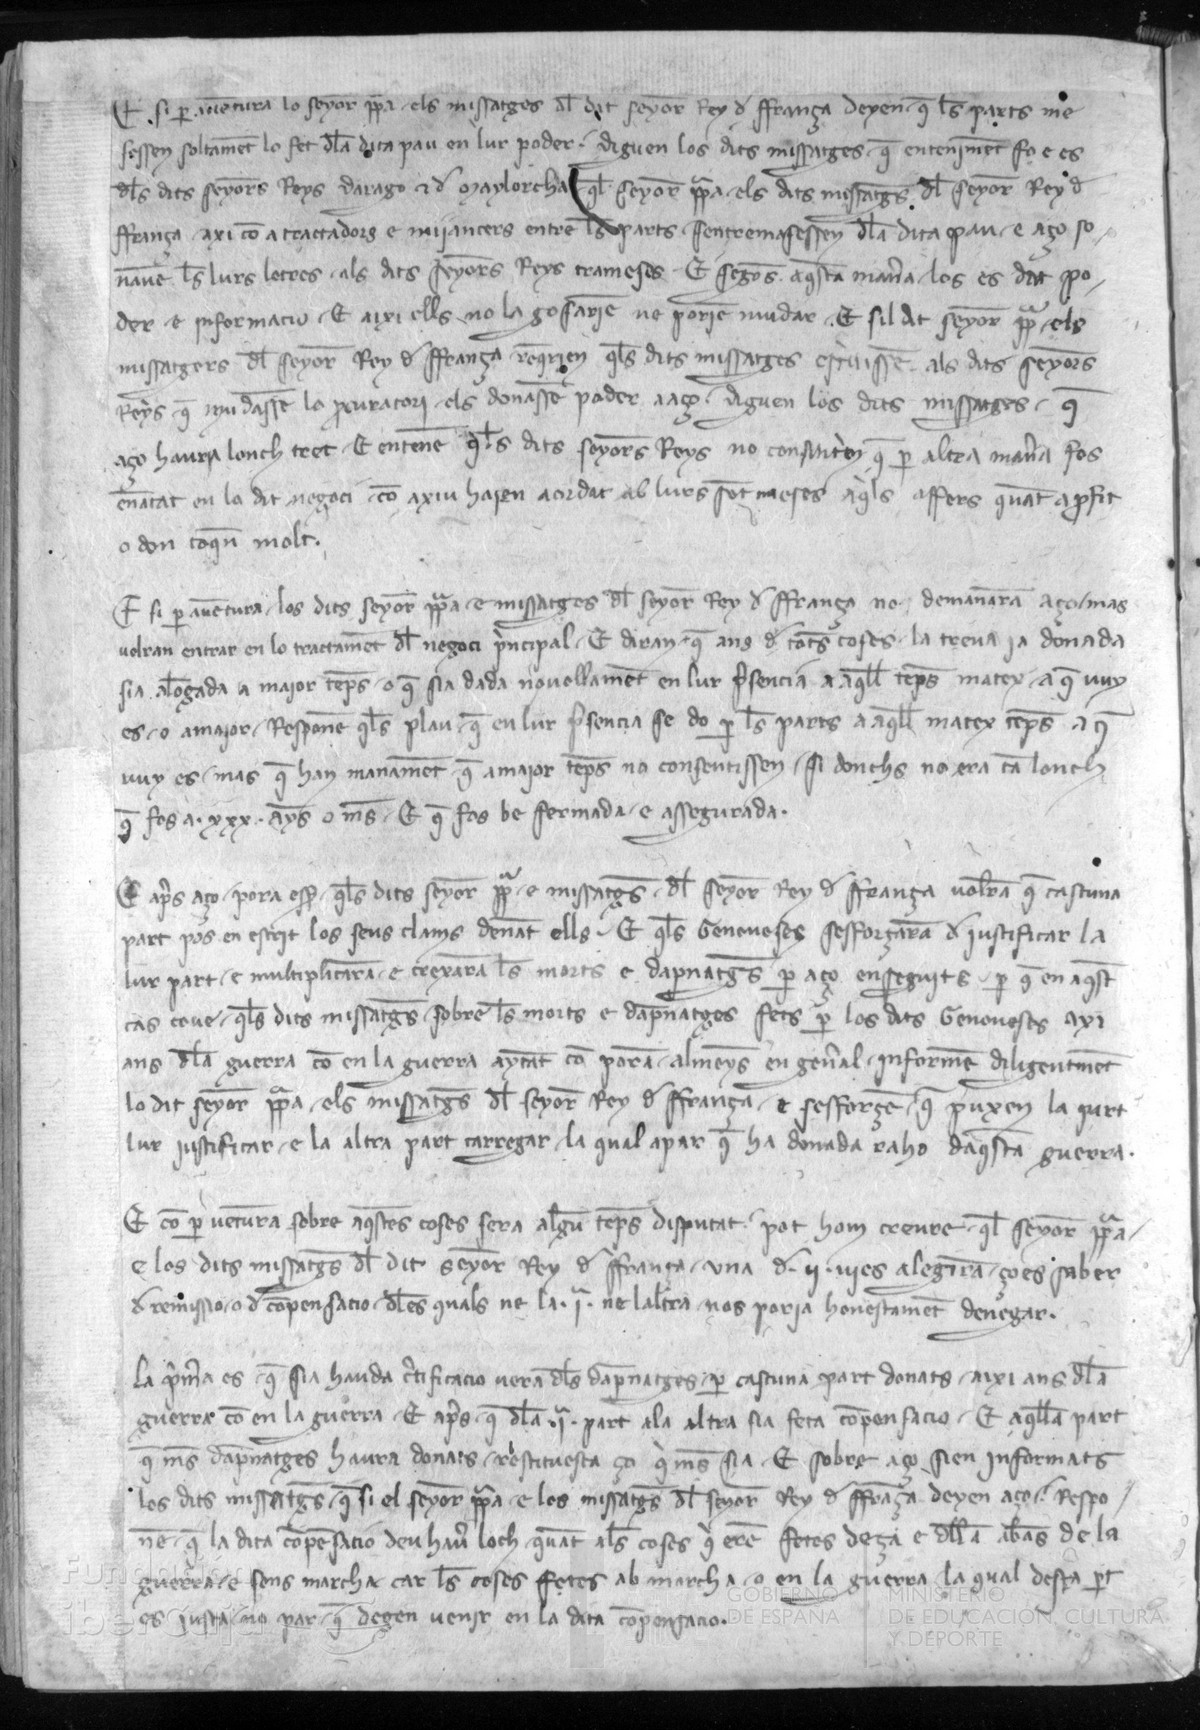 E si per auentura lo seyor ppa els missatges del dit seyor Rey de ffrança deyen q les parts me
sessen soltamēt lo fet dla dita pau en lur poder diguen los dits missatges q entenimēt fo e es
dls dits seyors Reys darago e de Maylorcha ql seyor ppa els dits missatgs dl seyor Rey d
ffrança axi cō a tractadors e mijancers entre les parts sentremesessen dla dita pau e aço so
nauē les lurs letres als dits seyors Reys trameses E segōs aqsta mana los es dat po
der e informacio E aixi ells no la gosariē ne poriē mudar E sil dit seyor ppa els
missatgers dl seyor Rey d ffrança reqrien qls dits missatges escriuissē als dits seyors
Reys q mudassē lo pcuratori els donassē poder a aço diguen los dits missatges q
aço hauria lonch tret E entenē qls dits seyors Reys no consintrien q per altra mana fos
enātat en lo dit negoci cō axiu hajen acordat ab lurs sotsmeses aqls affers quāt a profit
o don toqn molt.
E si per auētura los dits seyor ppa e missatges dl seyor Rey d ffrança no demanarā aço mas
volran entrar en lo tractamēt dl negoci principal E diran q ans d totes coses la treua ja donada
sia alogada a major tēps o q sia dada nouellamēt en lur psencia a aqll tēps matex a q uuy
es o a major Responē qls plau q en lur psencia se do per les parts a aqll matex tēps a q
uuy es mas q han manamēt q a major tēps no consentissen si donchs no era tā lonch
q fos a xxx ayns o mes E q fos be fermada e assegurada.
E aprs aço pora esser qls dits seyor ppa e missatgs dl seyor Rey d ffrança volrā q cascuna
part pos en escrit los seus clams denāt ells E qls Genoueses sesforçarā d justificar la
lur part e multiplicarā e crexarā les morts e dapnatges per aço enseguits per q en aqst
cas coue qls dits missatgs sobre les morts e dapnatges fets per los dits Genoueses axi
ans dla guerra cō en la guerra aytāt cō porā almeyns en genal informē diligentmēt
lo dit seyor ppa els missatgs dl seyor Rey d ffrança e sesforçē q puxen la part
lur justificar e la altra part carregar la qual apar q ha donada raho daqsta guerra.
E cō per uentura sobre aqstes coses sera algū tēps disputat pot hom creure ql seyor ppa
e los dits missatgs dl dit seyor Rey d ffrança vna d ij vies alegirā ço es saber
d remissio o d cōpensacio dles quals ne la j ne laltra nos poria honestamēt denegar.
La pmera es q sia hauda certificacio uera dls dapnatges per cascuna part donats aixi ans dla
guerra cō en la guerra E aprs q dla j part a la altra sia feta cōpensacio E aqlla part
q mes dapnatges haura donats restituesca ço q mes sia E sobre aço sien informats
los dits missatgs q si el seyor ppa e los missatgs dl seyor Rey d ffrança deyen aço Respo
nē q la dita cōpēsacio deu hauer loch quāt als coses q erē fetes deça e della abās de la
guerra e sens marcha car les coses fetes ab marcha o en la guerra la qual desta part
es justa no par q degen venir en la dita cōpensacio.
Fundación
ibercaja
GOBIERNO
DE ESPAÑA
MINISTERIO
DE EDUCACIÓN, CULTURA
Y DEPORTE